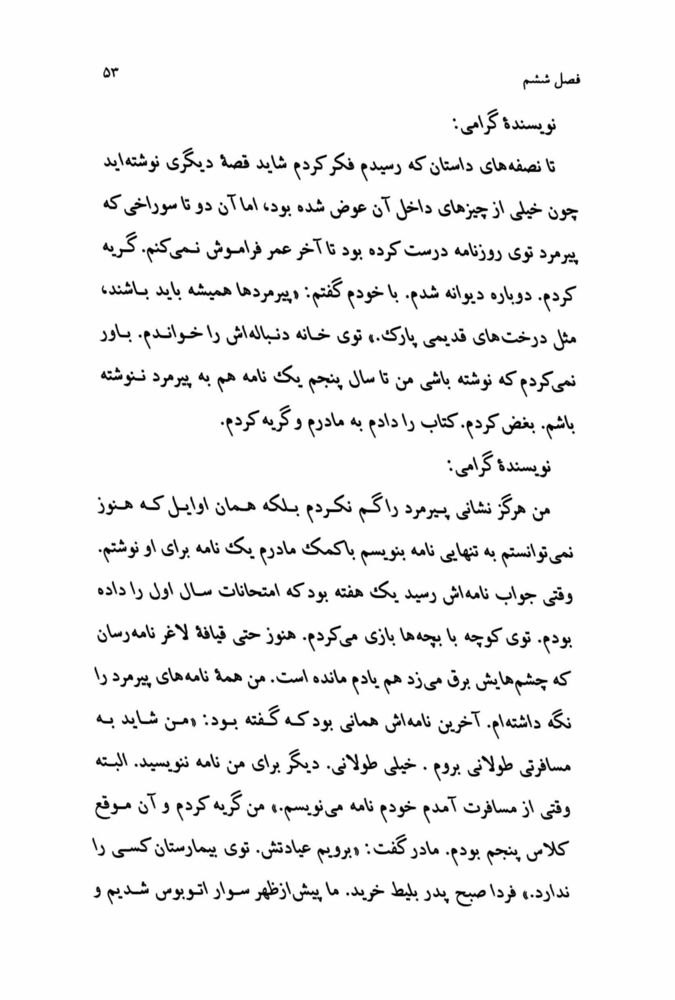 فصل ششم ۵۳
نویسندهٔ گرامی:
تا نصفه‌های داستان که رسیدم فکر کردم شاید قصهٔ دیگری نوشته‌اید
چون خیلی از چیزهای داخل آن عوض شده بود، اما آن دو تا سوراخی که
پیرمرد توی روزنامه درست کرده بود تا آخر عمر فراموش نمی‌کنم. گریه
کردم. دوباره دیوانه شدم. با خودم گفتم: «پیرمردها همیشه باید باشند،
مثل درخت‌های قدیمی پارک.» توی خانه دنباله‌اش را خواندم. باور
نمی‌کردم که نوشته باشی من تا سال پنجم یک نامه هم به پیرمرد ننوشته
باشم. بغض کردم. کتاب را دادم به مادرم و گریه کردم.
نویسندهٔ گرامی:
من هرگز نشانی پیرمرد را گم نکردم بلکه همان اوایل که هنوز
نمی‌توانستم به تنهایی نامه بنویسم با کمک مادرم یک نامه برای او نوشتم.
وقتی جواب نامه‌اش رسید یک هفته بود که امتحانات سال اول را داده
بودم. توی کوچه با بچه‌ها بازی می‌کردم. هنوز حتی قیافهٔ لاغر نامه‌رسان
که چشم‌هایش برق می‌زد هم یادم مانده است. من همهٔ نامه‌های پیرمرد را
نگه داشته‌ام. آخرین نامه‌اش همانی بود که گفته بود: «من شاید به
مسافرتی طولانی بروم . خیلی طولانی. دیگر برای من نامه ننویسید. البته
وقتی از مسافرت آمدم خودم نامه می‌نویسم.» من گریه کردم و آن موقع
کلاس پنجم بودم. مادر گفت: «برویم عیادتش. توی بیمارستان کسی را
ندارد.» فردا صبح پدر بلیط خرید. ما پیش‌ازظهر سوار اتوبوس شدیم و